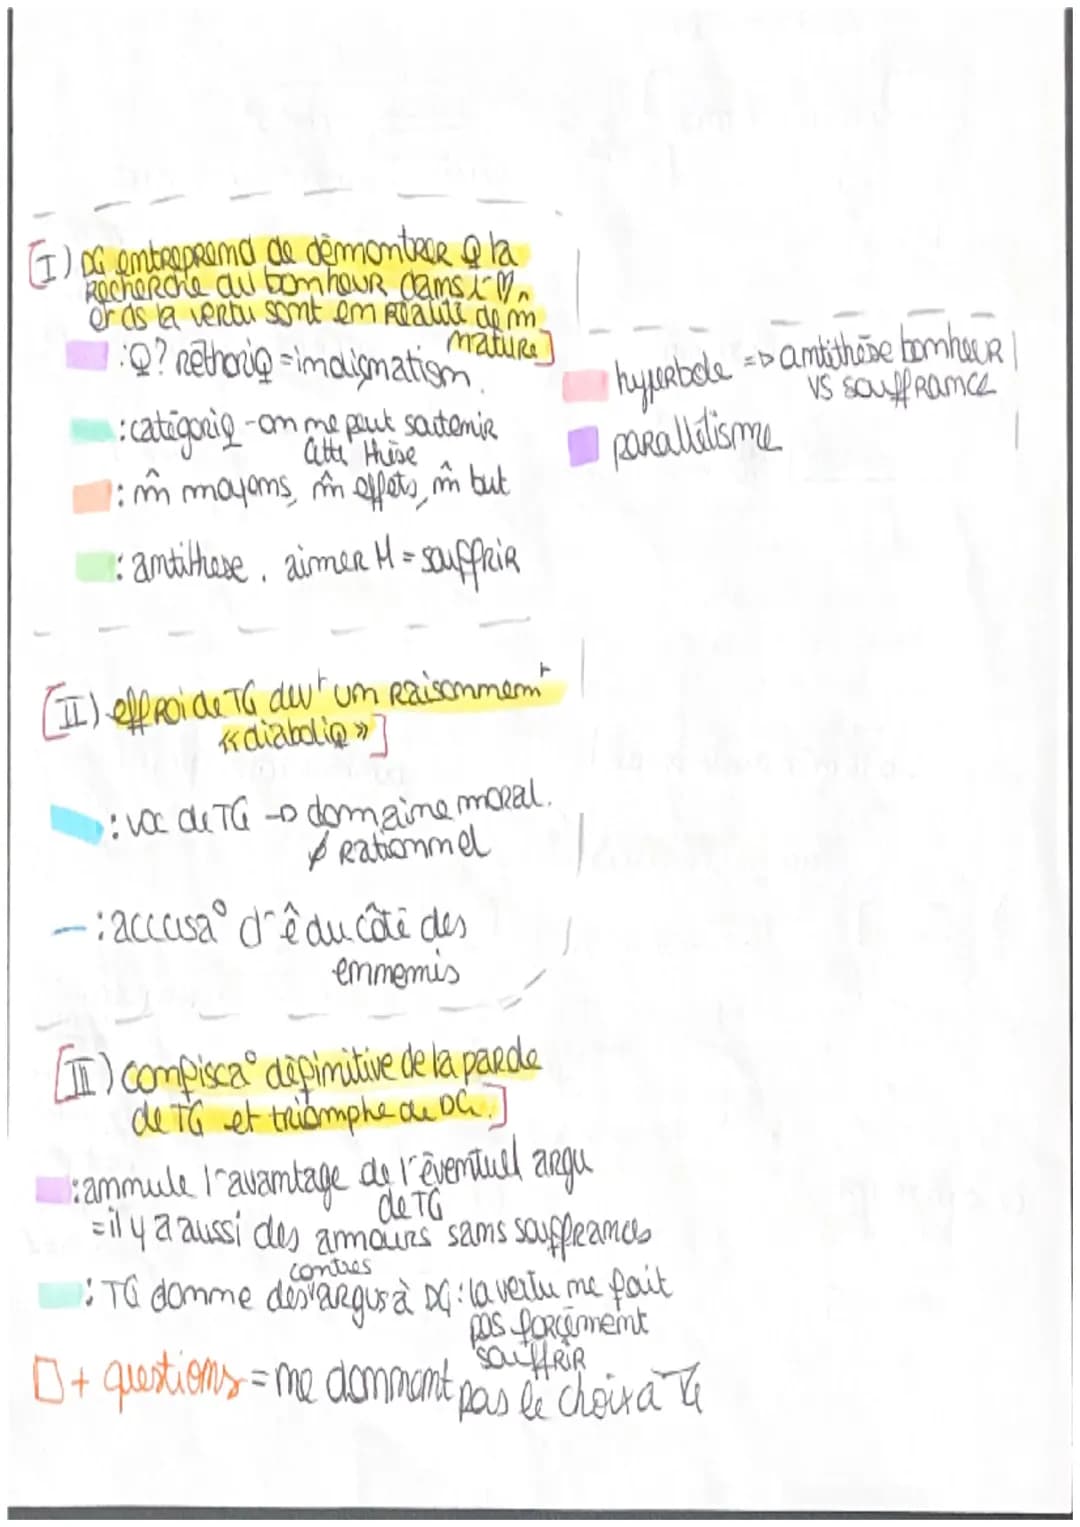 I) DG entreprend de démontrer Q la
recherche du bonheur dans l'♡
et ds la vertu sont en réalité de m̂
nature
: Q? réthoriq = indignation.
: catégoriq - on ne peut soutenir
cette thèse
: m̂ moyens, m̂ effets, m̂ but
: antithese. aimer M = souffrir
hyperbole => antithèse bonheur
VS souffrance
parallélisme
II) effroi de TG dvt un raisonnemt
« diaboliq »
: voc de TG → domaine moral.
∅ rationnel
: accusa° d'ê du côté des
ennemis
III) confisca° définitive de la parole
de TG et triomphe de DG.
: annule l'avantage de l'éventuel argu
de TG
= il y a aussi des amours sans souffrances
contres
: TG donne des argus à DG : la vertu ne fait
pas forcément
souffrir
□ + questions = ne donnent pas le choix à TG